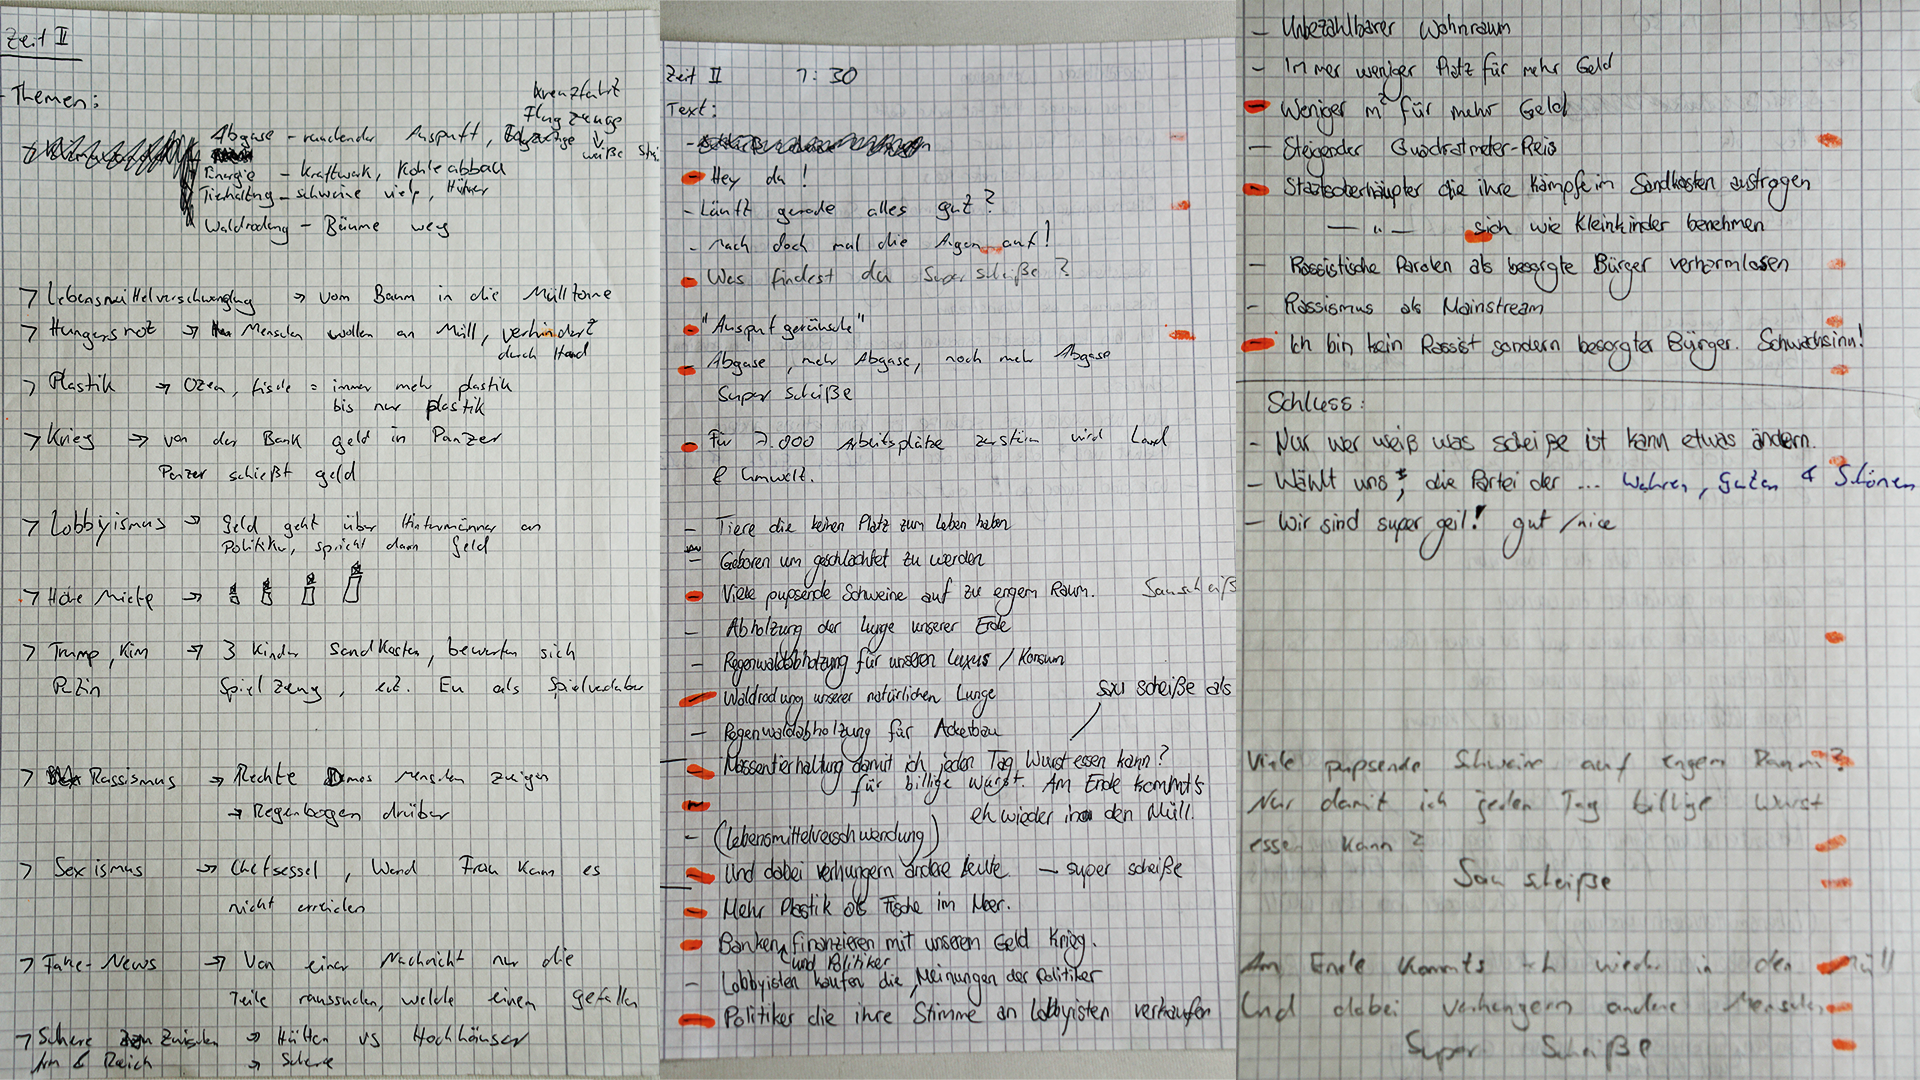 Zeit II
- Themen:
Kreuzfahrt
Flugzeuge
Abgase - rauchender Auspuff,
weiße
Energie - Kraftwerk, Kohleabbau
Tierhaltung - schweine viele, Hühner
Waldrodung - Bäume weg
→ Lebensmittelverschwendung → vom Baum in die Mülltonne
→ Hungersnot → Menschen wollen an Müll, verhindert
durch Hand
→ Plastik → Ozean, fische = immer mehr plastik
bis nur plastik
→ Krieg → von der Bank geld in Panzer
Panzer schießt geld
→ Lobbyismus → Geld geht über Hintermänner an
Politiker, spricht dann Geld
→ Hohe Miete →
→ Trump, Kim → 3 Kinder Sandkasten, bewerfen sich
Putin Spielzeug, Eu als Spielverderber
→ Rassismus → Rechte Demos Menschen zeigen
→ Regenbogen drüber
→ Sexismus → Chefsessel, Wand Frau kann es
nicht erreichen
→ Fake-News → Von einer Nachricht nur die
Teile raussuchen, welche einem gefallen
→ Schere zwischen → Hütten vs Hochhäuser
Arm & Reich → Schere
Zeit II 1:30
Text:
- Hey du!
- Läuft gerade alles gut?
- mach doch mal die Augen auf!
- Was findest du Super scheiße?
- "Auspuf geräusche"
- Abgase, mehr Abgase, noch mehr Abgase
Super scheiße
- Für 7.000 Arbeitsplätze zerstören wird Land
& Umwelt.
- Tiere die keinen Platz zum leben haben
- Geboren um geschlachtet zu werden
- Viele pupsende Schweine auf zu engem Raum. Sauscheiß
- Abholzung der Lunge unserer Erde
- Regenwaldabholzung für unseren Luxus / Konsum
- Waldrodung unserer natürlichen Lunge
sau scheiße als
- Regenwaldabholzung für Ackerbau
- Massentierhaltung damit ich jeden Tag Wurst essen kann?
für billige Wurst. Am Ende kommt's
eh wieder in den Müll.
- (Lebensmittelverschwendung)
- Und dabei verhungern andere Leute. - super scheiße
- Mehr Plastik als Fische im Meer.
- Banken finanzieren mit unserem Geld Krieg.
und Politiker
- Lobbyisten kaufen die Meinungen der Politiker
- Politiker die ihre Stimme an Lobbyisten verkaufen
- Unbezahlbarer Wohnraum
- Immer weniger Platz für mehr Geld
- Weniger m² für mehr Geld
- Steigender Quadratmeter-Preis
- Staatsoberhäupter die ihre Kämpfe im Sandkasten austragen
— " — sich wie Kleinkinder benehmen
- Rassistische Parolen als besorgte Bürger verharmlosen
- Rassismus als Mainstream
- Ich bin kein Rassist sondern besorgter Bürger. Schwachsinn!
Schluss:
- Nur wer weiß was scheiße ist kann etwas ändern.
- Wählt uns, die Partei der ... Wahren, Guten & Schönen
- Wir sind super geil! gut / nice
Viele pupsende Schweine auf engem Raum?
Nur damit ich jeden Tag billige Wurst
essen kann?
Sau scheiße
Am Ende kommts eh wieder in den Müll
Und dabei verhungern andere Menschen
Super Scheiße